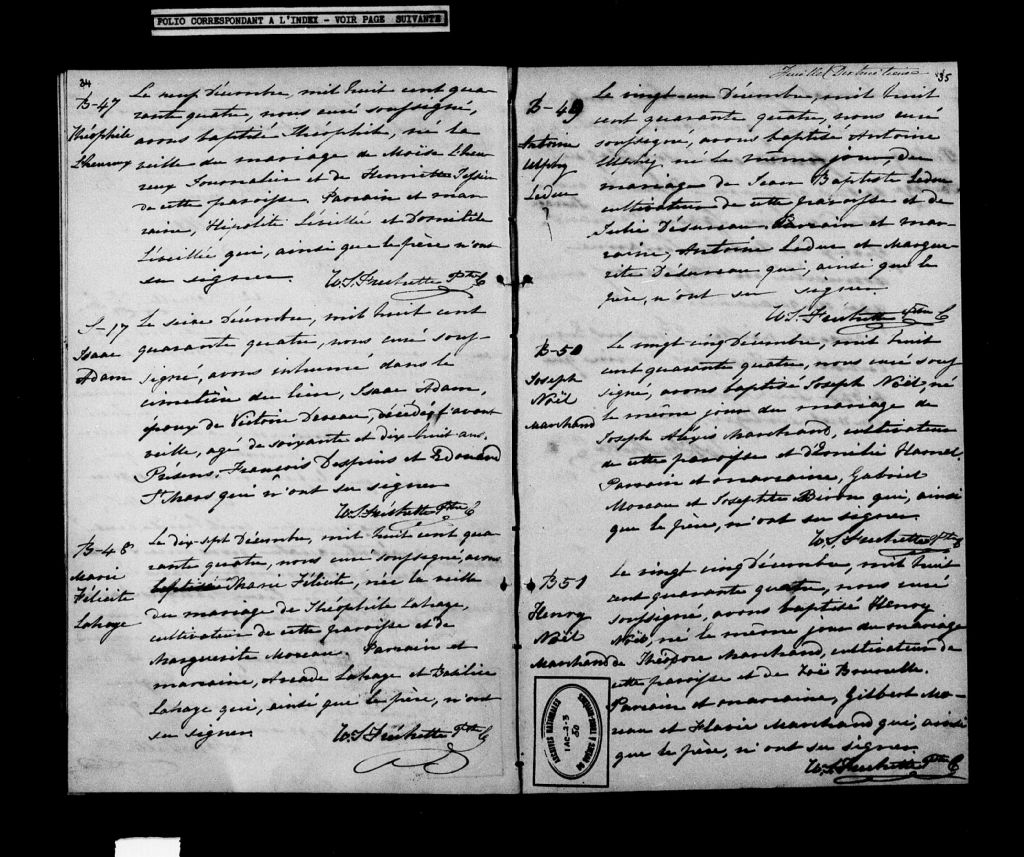 FOLIO CORRESPONDANT A L'INDEX - VOIR PAGE SUIVANTE
34
B-47
Théophile
Lheureux
Le neuf Décembre, mil huit cent qua-
rante quatre, nous curé soussigné,
avons baptisé Théophile, né la
veille du mariage de Moïse Lheu-
reux Journalier et de Henriette Tessier
de cette paroisse. Parrain et mar-
raine, Hypolite Léveillée et Domitilde
Léveillée qui, ainsi que le père n'ont
su signer.
W. S. Fréchette Ptre C
S-17
Isaac
Adam
Le seize Décembre, mil huit cent
quarante quatre, nous curé sous-
signé, avons inhumé dans le
cimetière du lieu, Isaac Adam,
époux de Victoire décédé l'avant
veille, agé de soixante et dix huit ans.
Présens, François Despins et Edouard
St Thars qui n'ont su signer
W. S. Fréchette Ptre C
B-48
Marie
Félicité
Lahaye
Le dix sept Décembre, mil huit cent qua-
rante quatre, nous curé soussigné, avons
baptisée Marie Félicité, née la veille
du mariage de Théophile Lahaye,
cultivateur de cette paroisse et de
Marguerite Moreau. Parrain et
marraine, Arcade Lahaye et Basilise
Lahaye qui, ainsi que le père, n'ont
su signer
W. S. Fréchette Ptre C
Feuillet Dix huitième
35
B-49
Antoine
Leduc
?
Le vingt un Décembre, mil huit
cent quarante quatre, nous curé
soussigné, avons baptisé Antoine
né le même jour, du
mariage de Jean Baptiste Leduc
cultivateur de cette paroisse et de
Julie Désureau. Parrain et mar-
raine, Antoine Leduc et Margue-
rite Désureau qui, ainsi que le
père, n'ont su signer.
W. S. Fréchette Ptre C
B-50
Joseph
Noël
Marchand
Le vingt cinq décembre, mil huit
cent quarante quatre, nous curé sous
signé, avons baptisé Joseph Noël, né
le même jour du mariage de
Joseph Alexis Marchand, cultivateur
de cette paroisse et d'Emilie Hamel.
Parrain et marraine, Gabriel
Moreau et Josephte Biron qui, ainsi
que le père, n'ont su signer
W. S. Fréchette Ptre C
B51
Henry
Noël
Marchand
Le vingt cinq décembre, mil huit
cent quarante quatre, nous curé
soussigné, avons baptisé Henry
Noël, né le même jour du mariage
de Théodore Marchand, cultivateur de
cette paroisse et de Zoë Brunelle.
Parrain et marraine, Gilbert Mo-
reau et Flavie Marchand qui, ainsi
que le père, n'ont su signer
W. S. Fréchette Ptre C
ARCHIVES NATIONALES
DU QUÉBEC À TROIS-RIVIÈRES